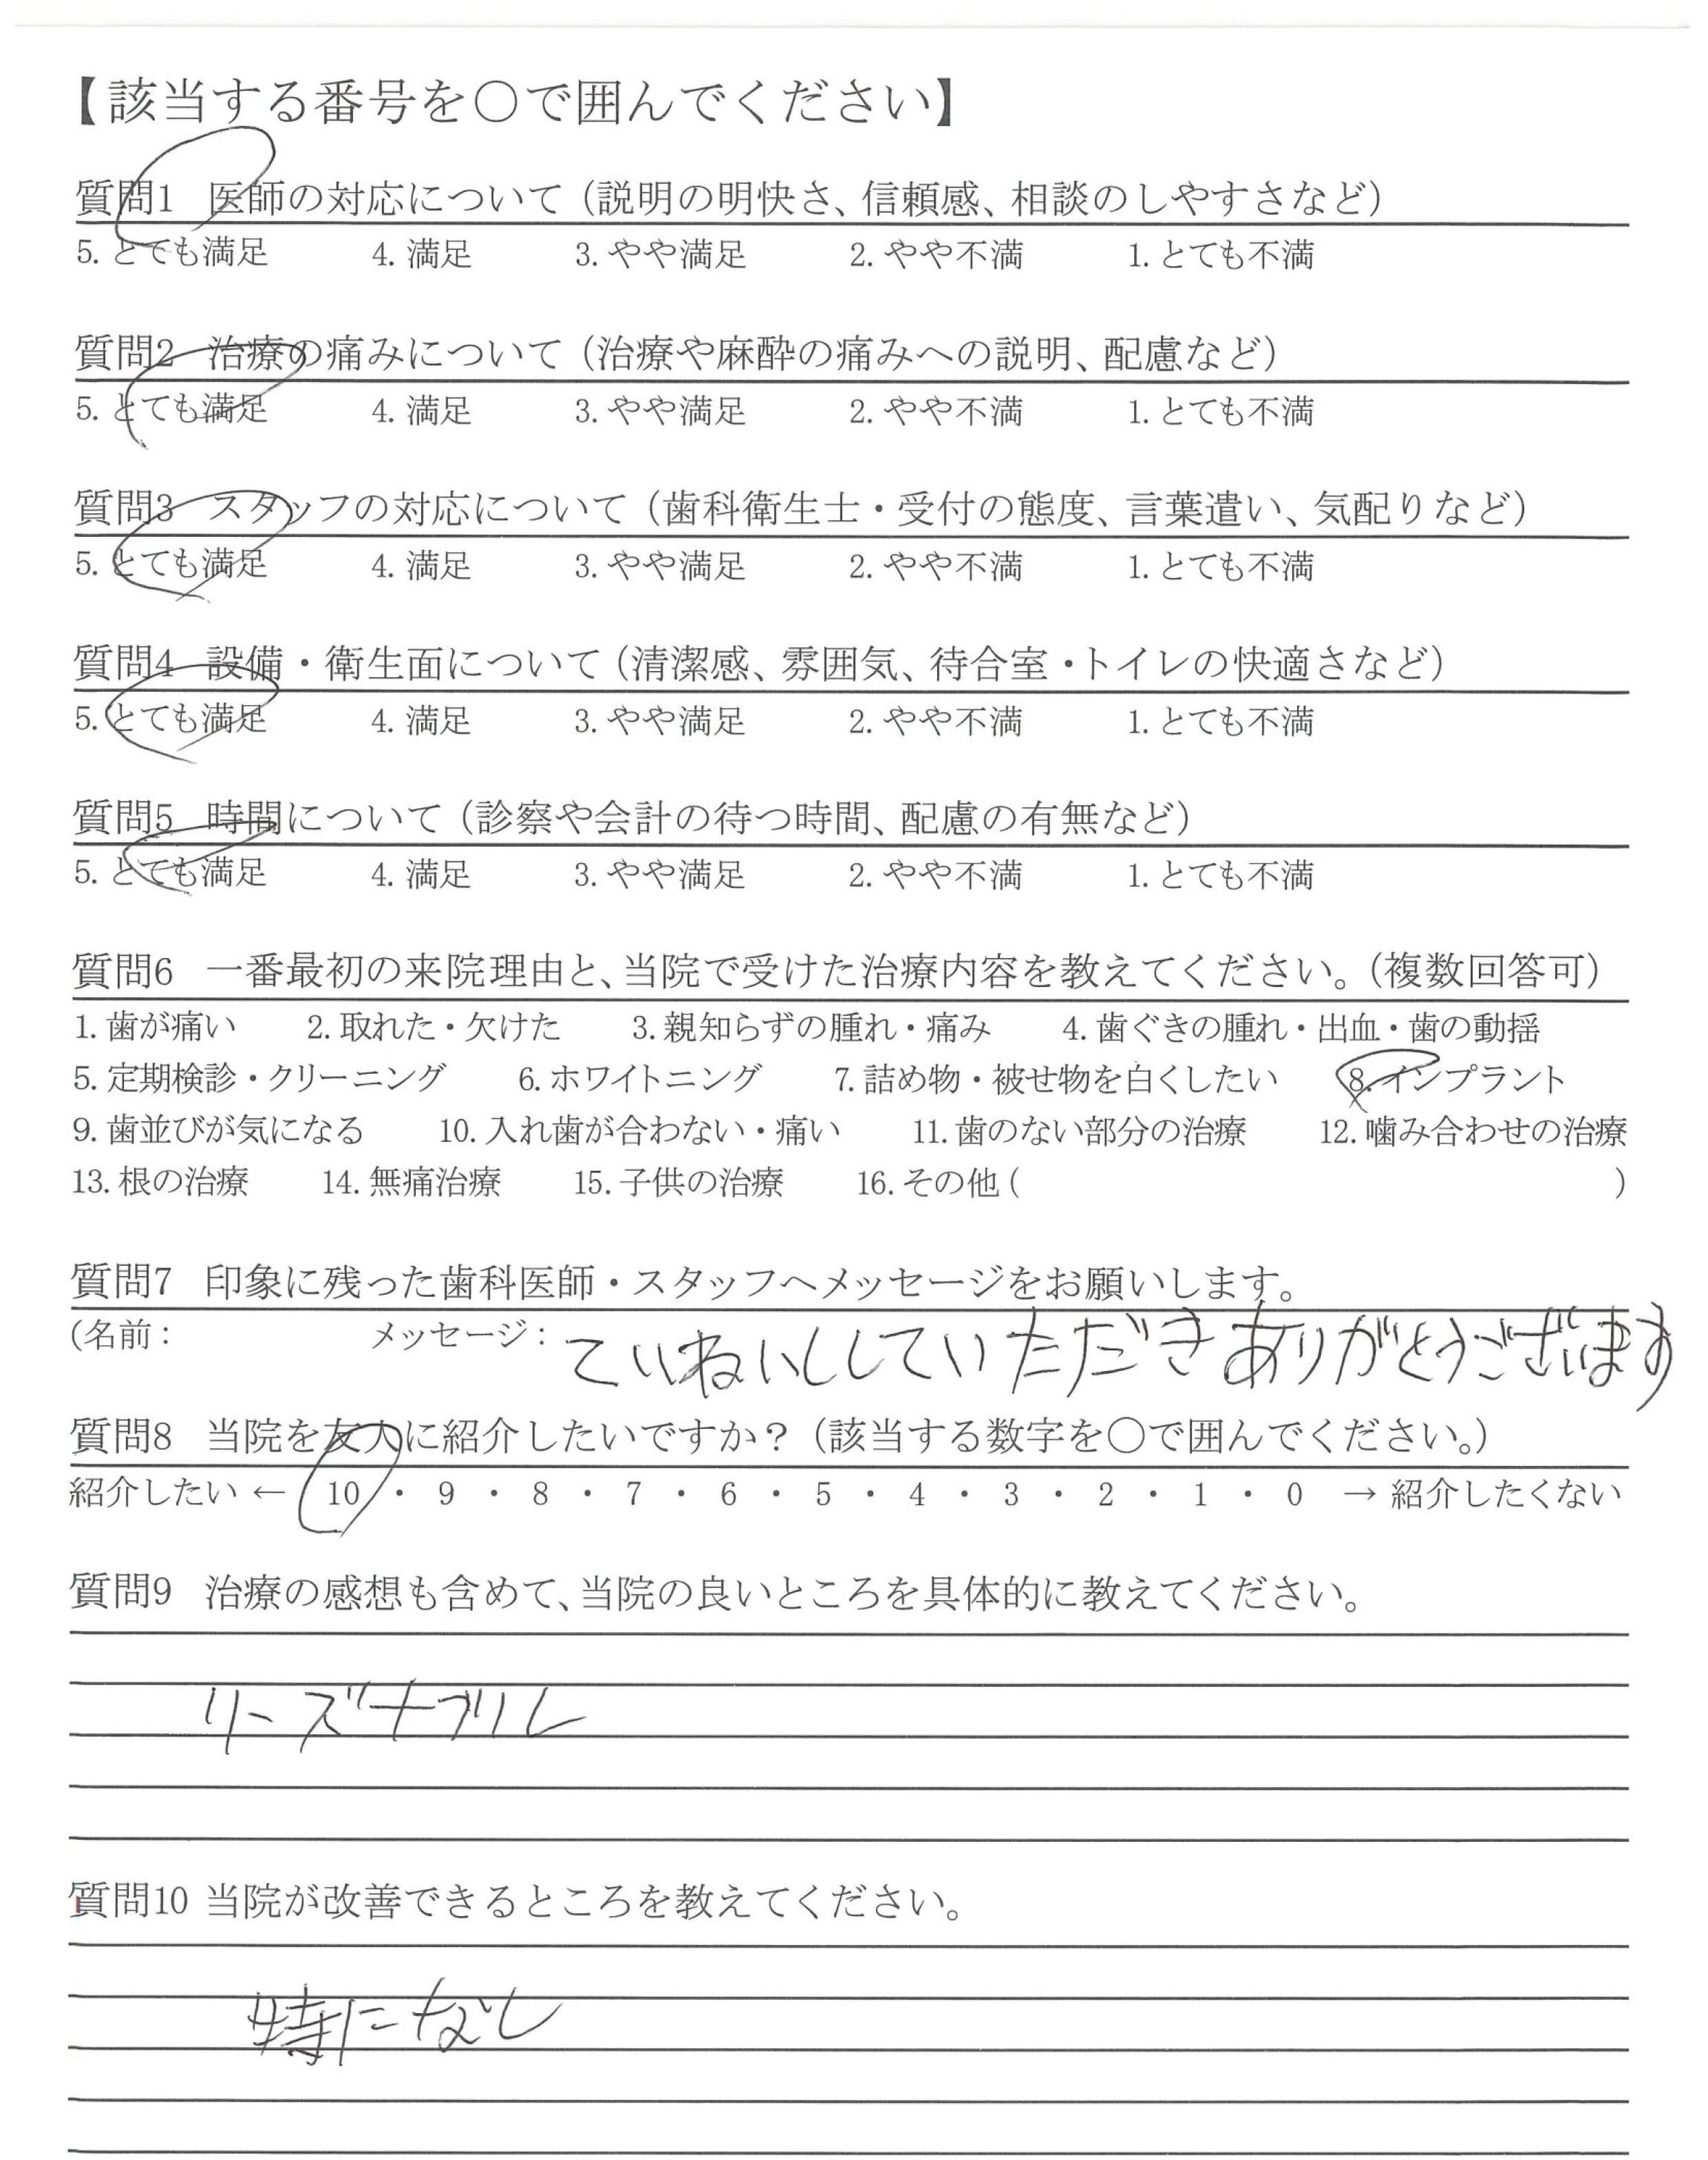 【該当する番号を〇で囲んでください】
質問1 医師の対応について（説明の明快さ、信頼感、相談のしやすさなど）
5. とても満足 4. 満足 3. やや満足 2. やや不満 1. とても不満
質問2 治療の痛みについて（治療や麻酔の痛みへの説明、配慮など）
5. とても満足 4. 満足 3. やや満足 2. やや不満 1. とても不満
質問3 スタッフの対応について（歯科衛生士・受付の態度、言葉遣い、気配りなど）
5. とても満足 4. 満足 3. やや満足 2. やや不満 1. とても不満
質問4 設備・衛生面について（清潔感、雰囲気、待合室・トイレの快適さなど）
5. とても満足 4. 満足 3. やや満足 2. やや不満 1. とても不満
質問5 時間について（診察や会計の待つ時間、配慮の有無など）
5. とても満足 4. 満足 3. やや満足 2. やや不満 1. とても不満
質問6 一番最初の来院理由と、当院で受けた治療内容を教えてください。（複数回答可）
1. 歯が痛い 2. 取れた・欠けた 3. 親知らずの腫れ・痛み 4. 歯ぐきの腫れ・出血・歯の動揺
5. 定期検診・クリーニング 6. ホワイトニング 7. 詰め物・被せ物を白くしたい 8. インプラント
9. 歯並びが気になる 10. 入れ歯が合わない・痛い 11. 歯のない部分の治療 12. 噛み合わせの治療
13. 根の治療 14. 無痛治療 15. 子供の治療 16. その他（ ）
質問7 印象に残った歯科医師・スタッフへメッセージをお願いします。
（名前： メッセージ：ていねいししていただきありがとうございます
質問8 当院を友人に紹介したいですか？（該当する数字を〇で囲んでください。）
紹介したい ← 10 ・ 9 ・ 8 ・ 7 ・ 6 ・ 5 ・ 4 ・ 3 ・ 2 ・ 1 ・ 0 → 紹介したくない
質問9 治療の感想も含めて、当院の良いところを具体的に教えてください。
リーズナブル
質問10 当院が改善できるところを教えてください。
特になし